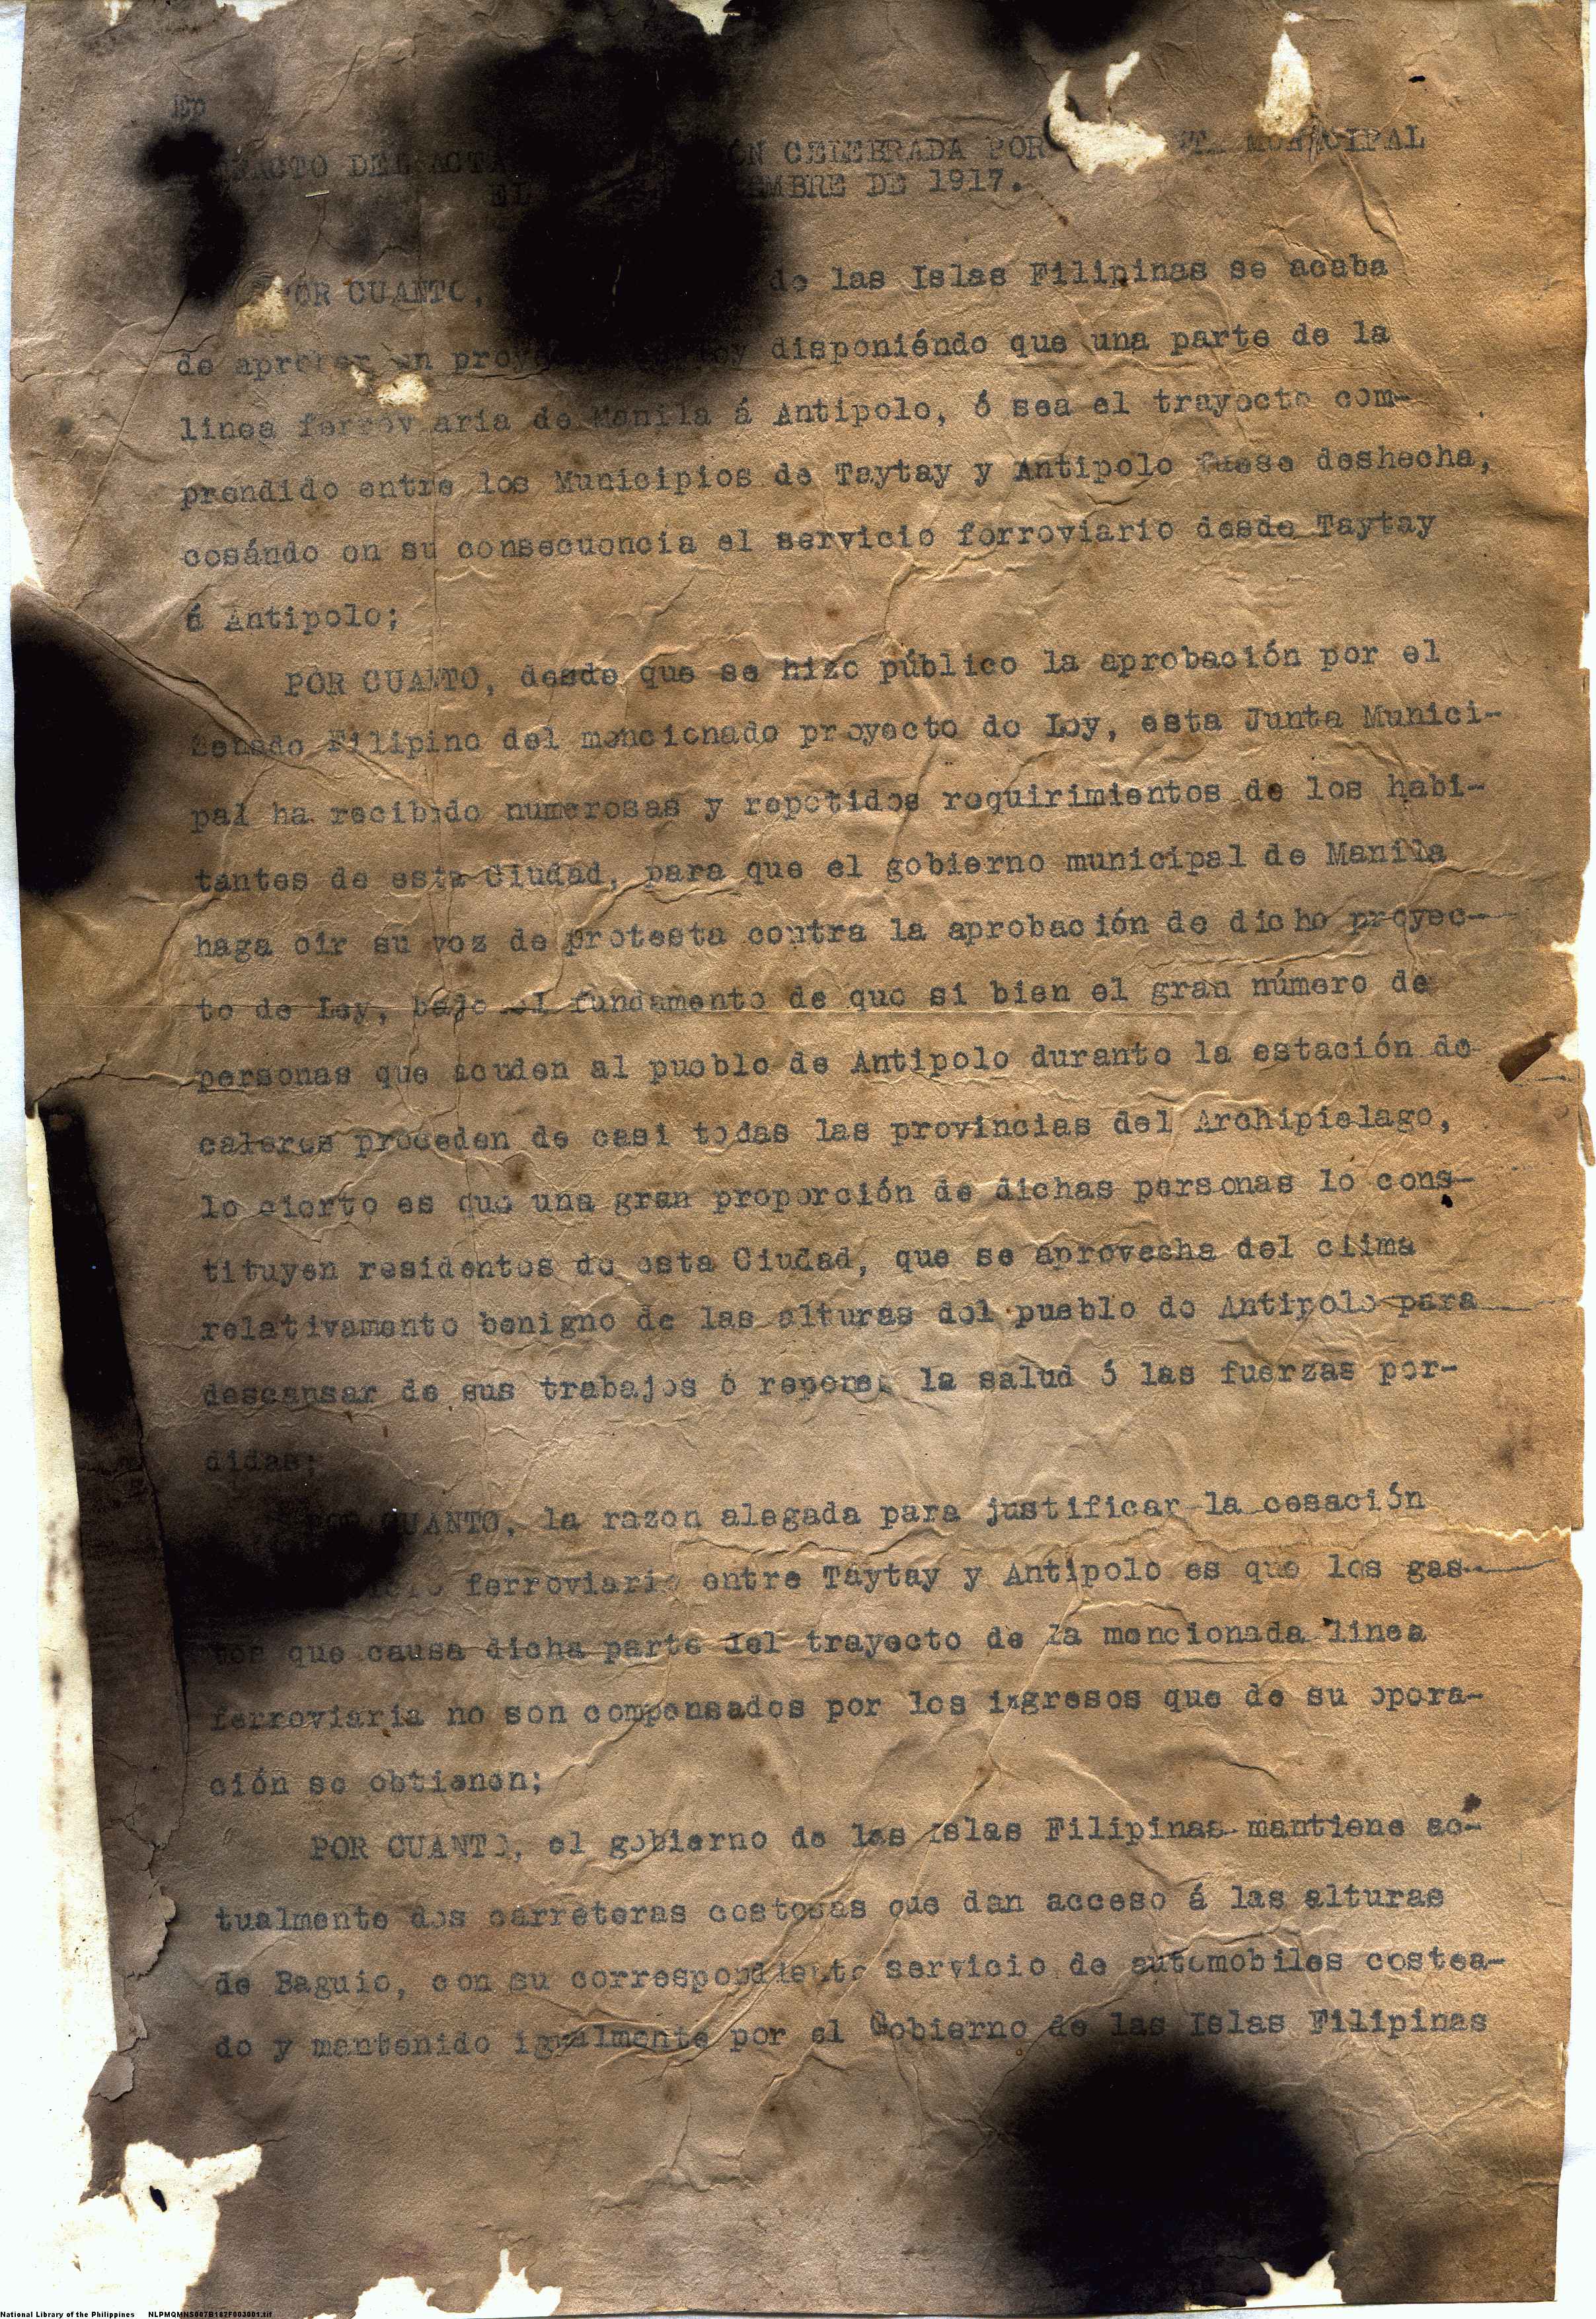 Ep
EXTRACTO DEL ACTA ÓN CELEBRADA POR MUNICIPAL
EL EMBRE DE 1917.
POR CUANTO, de las Islas Filipinas se acaba
de aprobar un disponiéndo que una parte de la
linea ferroviaria de Manila á Antipolo, ó sea el trayecto com-
prendido entre los Municipios de Taytay y Antipolo fuese deshecha,
cesándo en su consecuencia el servicio ferroviario desde Taytay
á Antipolo;
POR CUANTO, desde que se hizo público la aprobación por el
Senado Filipino del mencionado proyecto de Ley, esta Junta Munici-
pal ha recibido numerosas y repetidos requirimientos de los habi-
tantes de esta Ciudad, para que el gobierno municipal de Manila
haga oir su voz de protesta contra la aprobación de dicho proyec-
to de Ley, bajo el fundamento de que si bien el gran número de
personas que acuden al pueblo de Antipolo durante la estación de
calores proceden de casi todas las provincias del Archipielago,
lo cierto es que una gran proporción de dichas personas lo cons-
tituyen residentes de esta Ciudad, que se aprovecha del clima
relativamente benigno de las alturas del pueblo de Antipolo para
descansar de sus trabajos ó reponer la salud ó las fuerzas per-
didas;
POR CUANTO, la razon alegada para justificar la cesación
ferroviario entre Taytay y Antipolo es que los gas-
tos que causa dicha parte del trayecto de la mencionada linea
ferroviaria no son compensados por los ingresos que de su opera-
ción se obtienen;
POR CUANTO, el gobierno de las Islas Filipinas mantiene ac-
tualmente dos carreteras costosas que dan acceso á las alturas
de Baguio, con su correspondiente servicio de automobiles costea-
do y mantenido igualmente por el Gobierno de las Islas Filipinas
National Library of the Philippines NLPMQMNS007B167F003001.tif